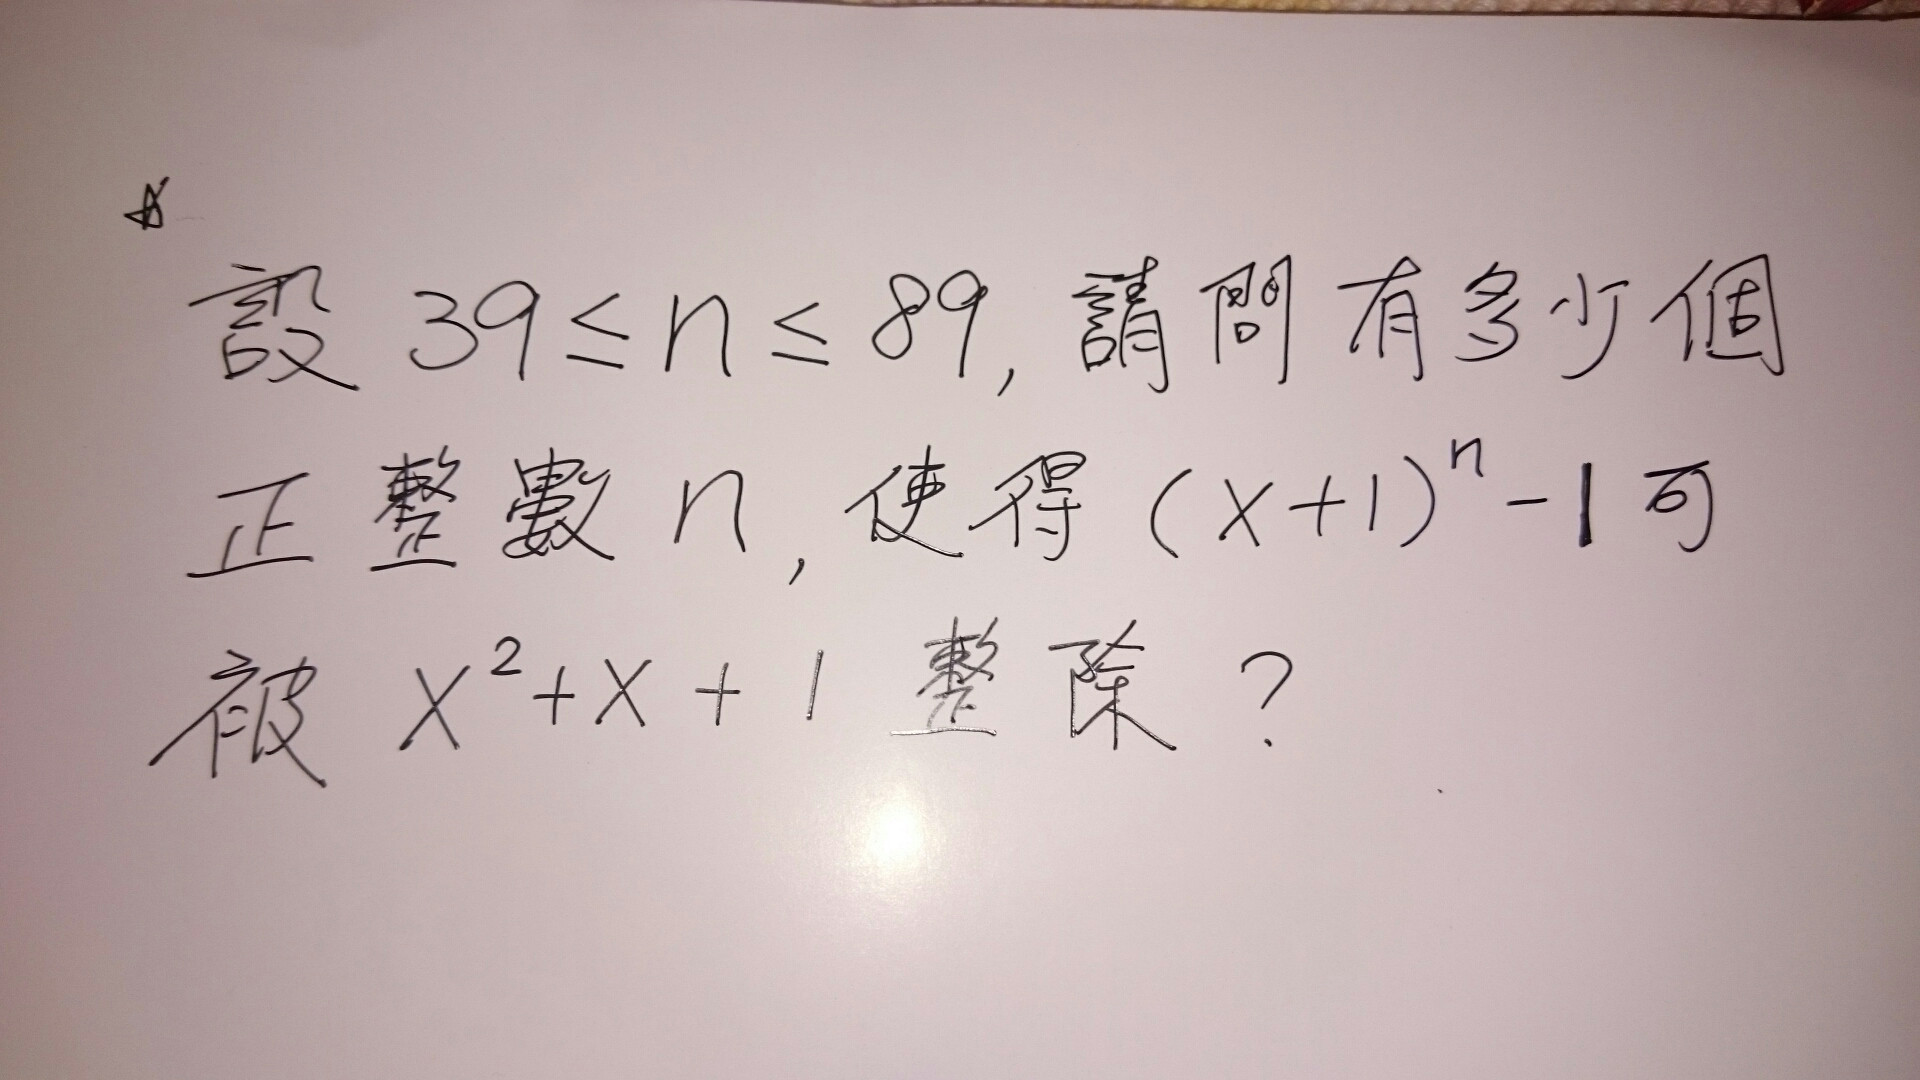 設 39≤n≤89, 請問有多少個
正整數 n, 使得 (x+1)ⁿ-1可
被 x²+x+1 整除?